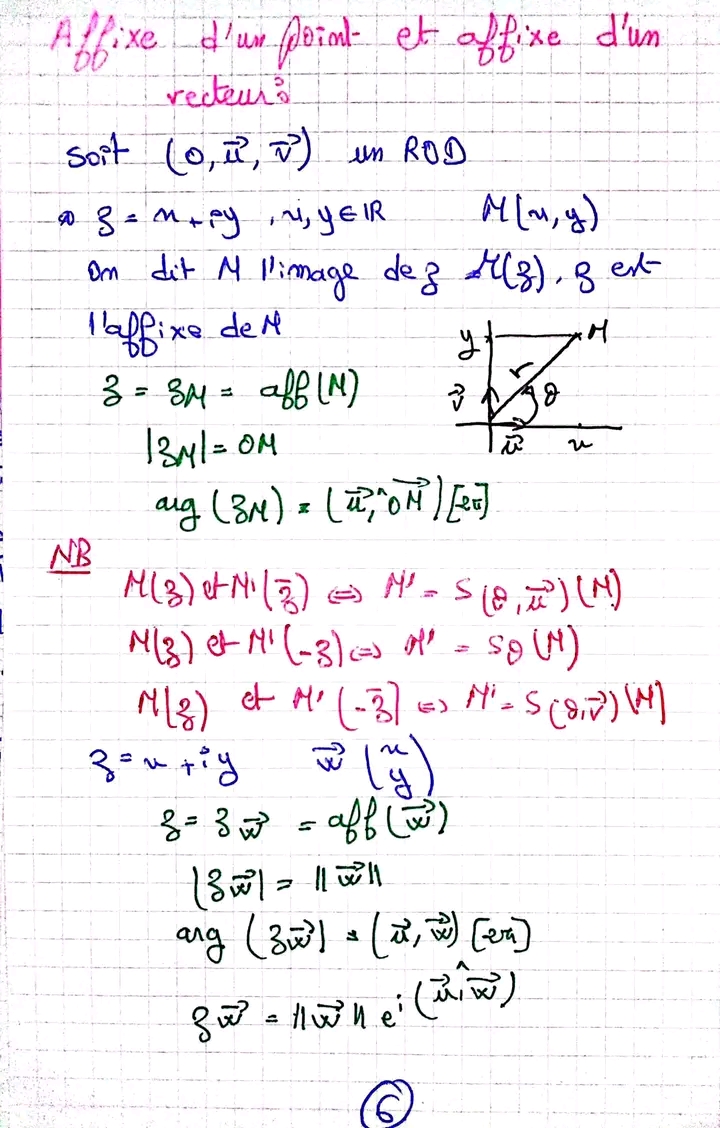 Affixe d'un point et affixe d'un
vecteur:
Soit (O, u⃗, v⃗) un ROD
z = x + iy , x, y ∈ IR M(x, y)
On dit M l'image de z M(z). z est
l'affixe de M
y M
r
v⃗ θ
u⃗ x
z = z_M = aff(M)
|z_M| = OM
arg(z_M) = (u⃗,^OM⃗) [2π]
NB
M(z) et M'(z̄) ⇔ M' = S(O, u⃗)(M)
M(z) et M'(-z) ⇔ M' = S_O(M)
M(z) et M'(-z̄) ⇔ M' = S(O, v⃗)(M)
z = x + iy w⃗ (x y)
z = z_w⃗ = aff(w⃗)
|z_w⃗| = ||w⃗||
arg(z_w⃗) = (u⃗, w⃗) [2π]
z_w⃗ = ||w⃗|| e^i(u⃗,^w⃗)
6